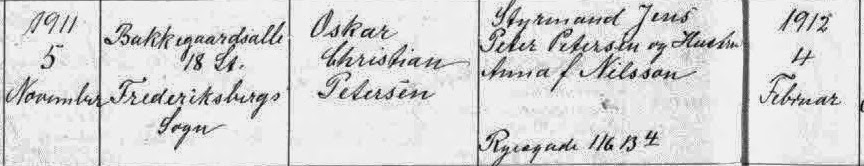 1911
5
November
Bakkegaardsalle
18 St.
Frederiksbergs
Sogn
Oskar
Christian
Petersen
Styrmand Jens
Peter Petersen og Hustru
Anna f Nilsson
Ryesgade 116 B 4
1912
4
Februar